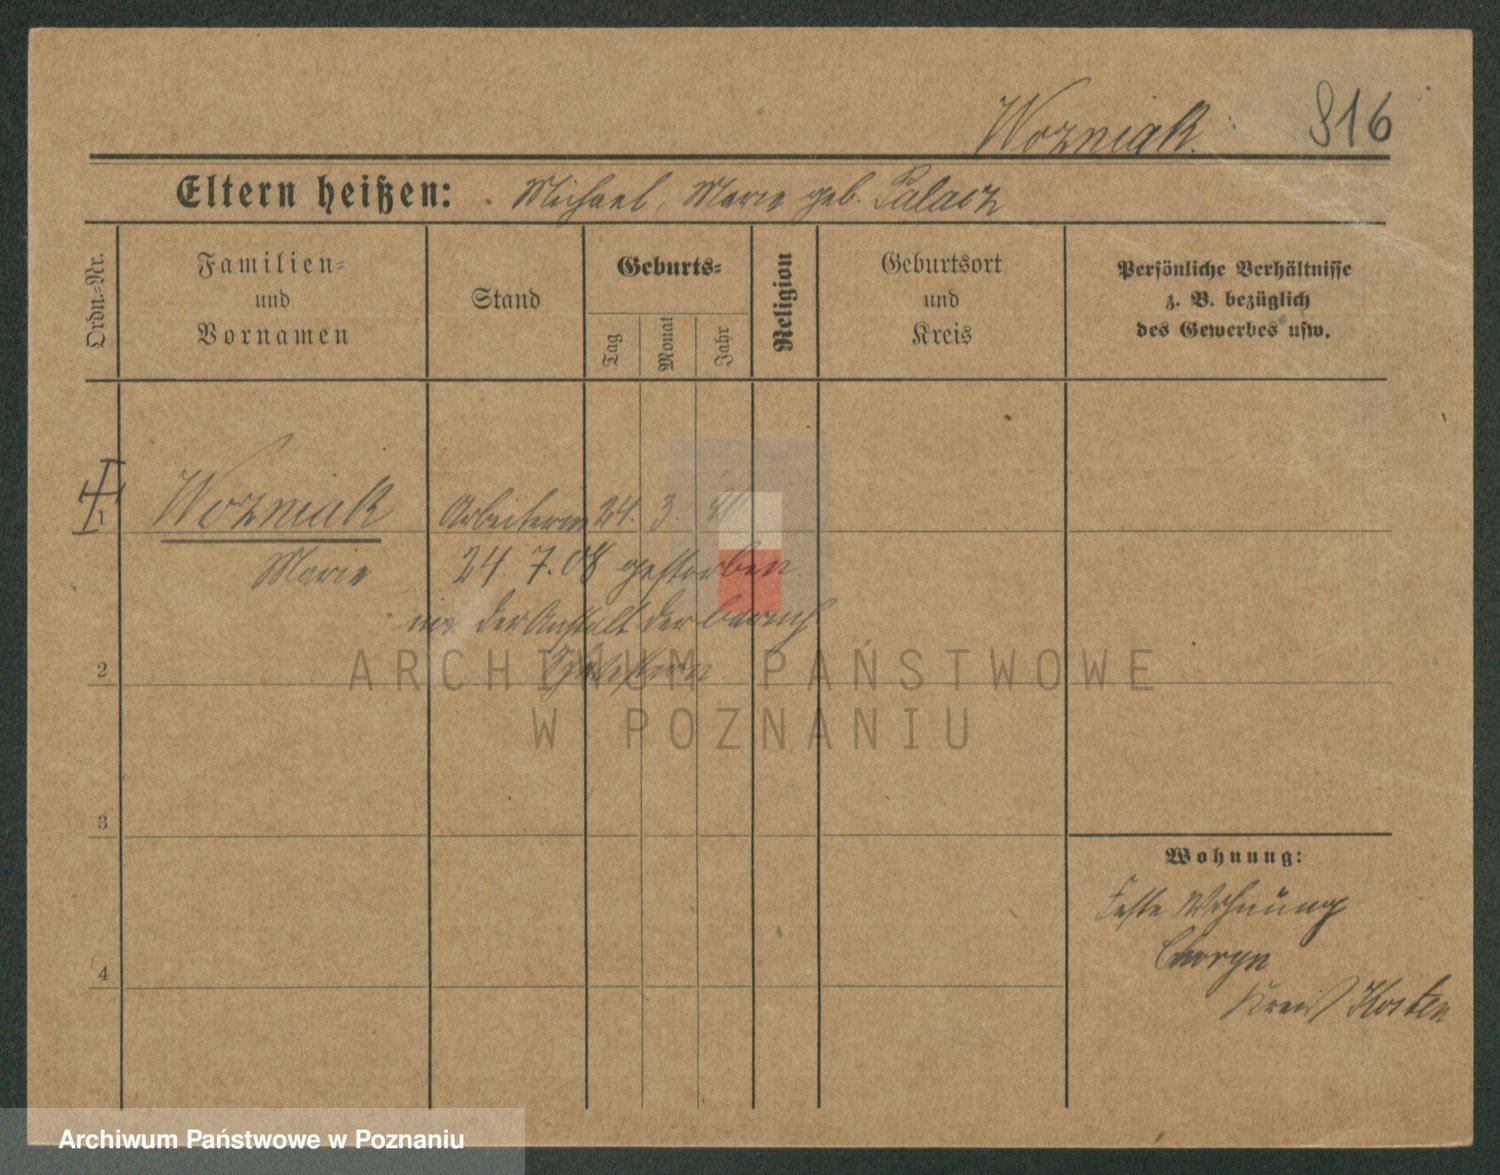 Wozniak. 816
Eltern heißen: Michael, Marie geb. Palacz
Ordn.=Nr.
Familien=
und
Vornamen
Stand
Geburts=
Tag
Monat
Jahr
Religion
Geburtsort
und
Kreis
Persönliche Verhältnisse
z. B. bezüglich
des Gewerbes usw.
1 Wozniak Arbeiterin 24. 3.
Marie 24 7. 08 gestorben
in der Anstalt der barmh
Schwestern.
2
3
4
Wohnung:
Feste Wohnung
Choryn
Kreis Kosten
ARCHIWUM PAŃSTWOWE
W POZNANIU
Archiwum Państwowe w Poznaniu